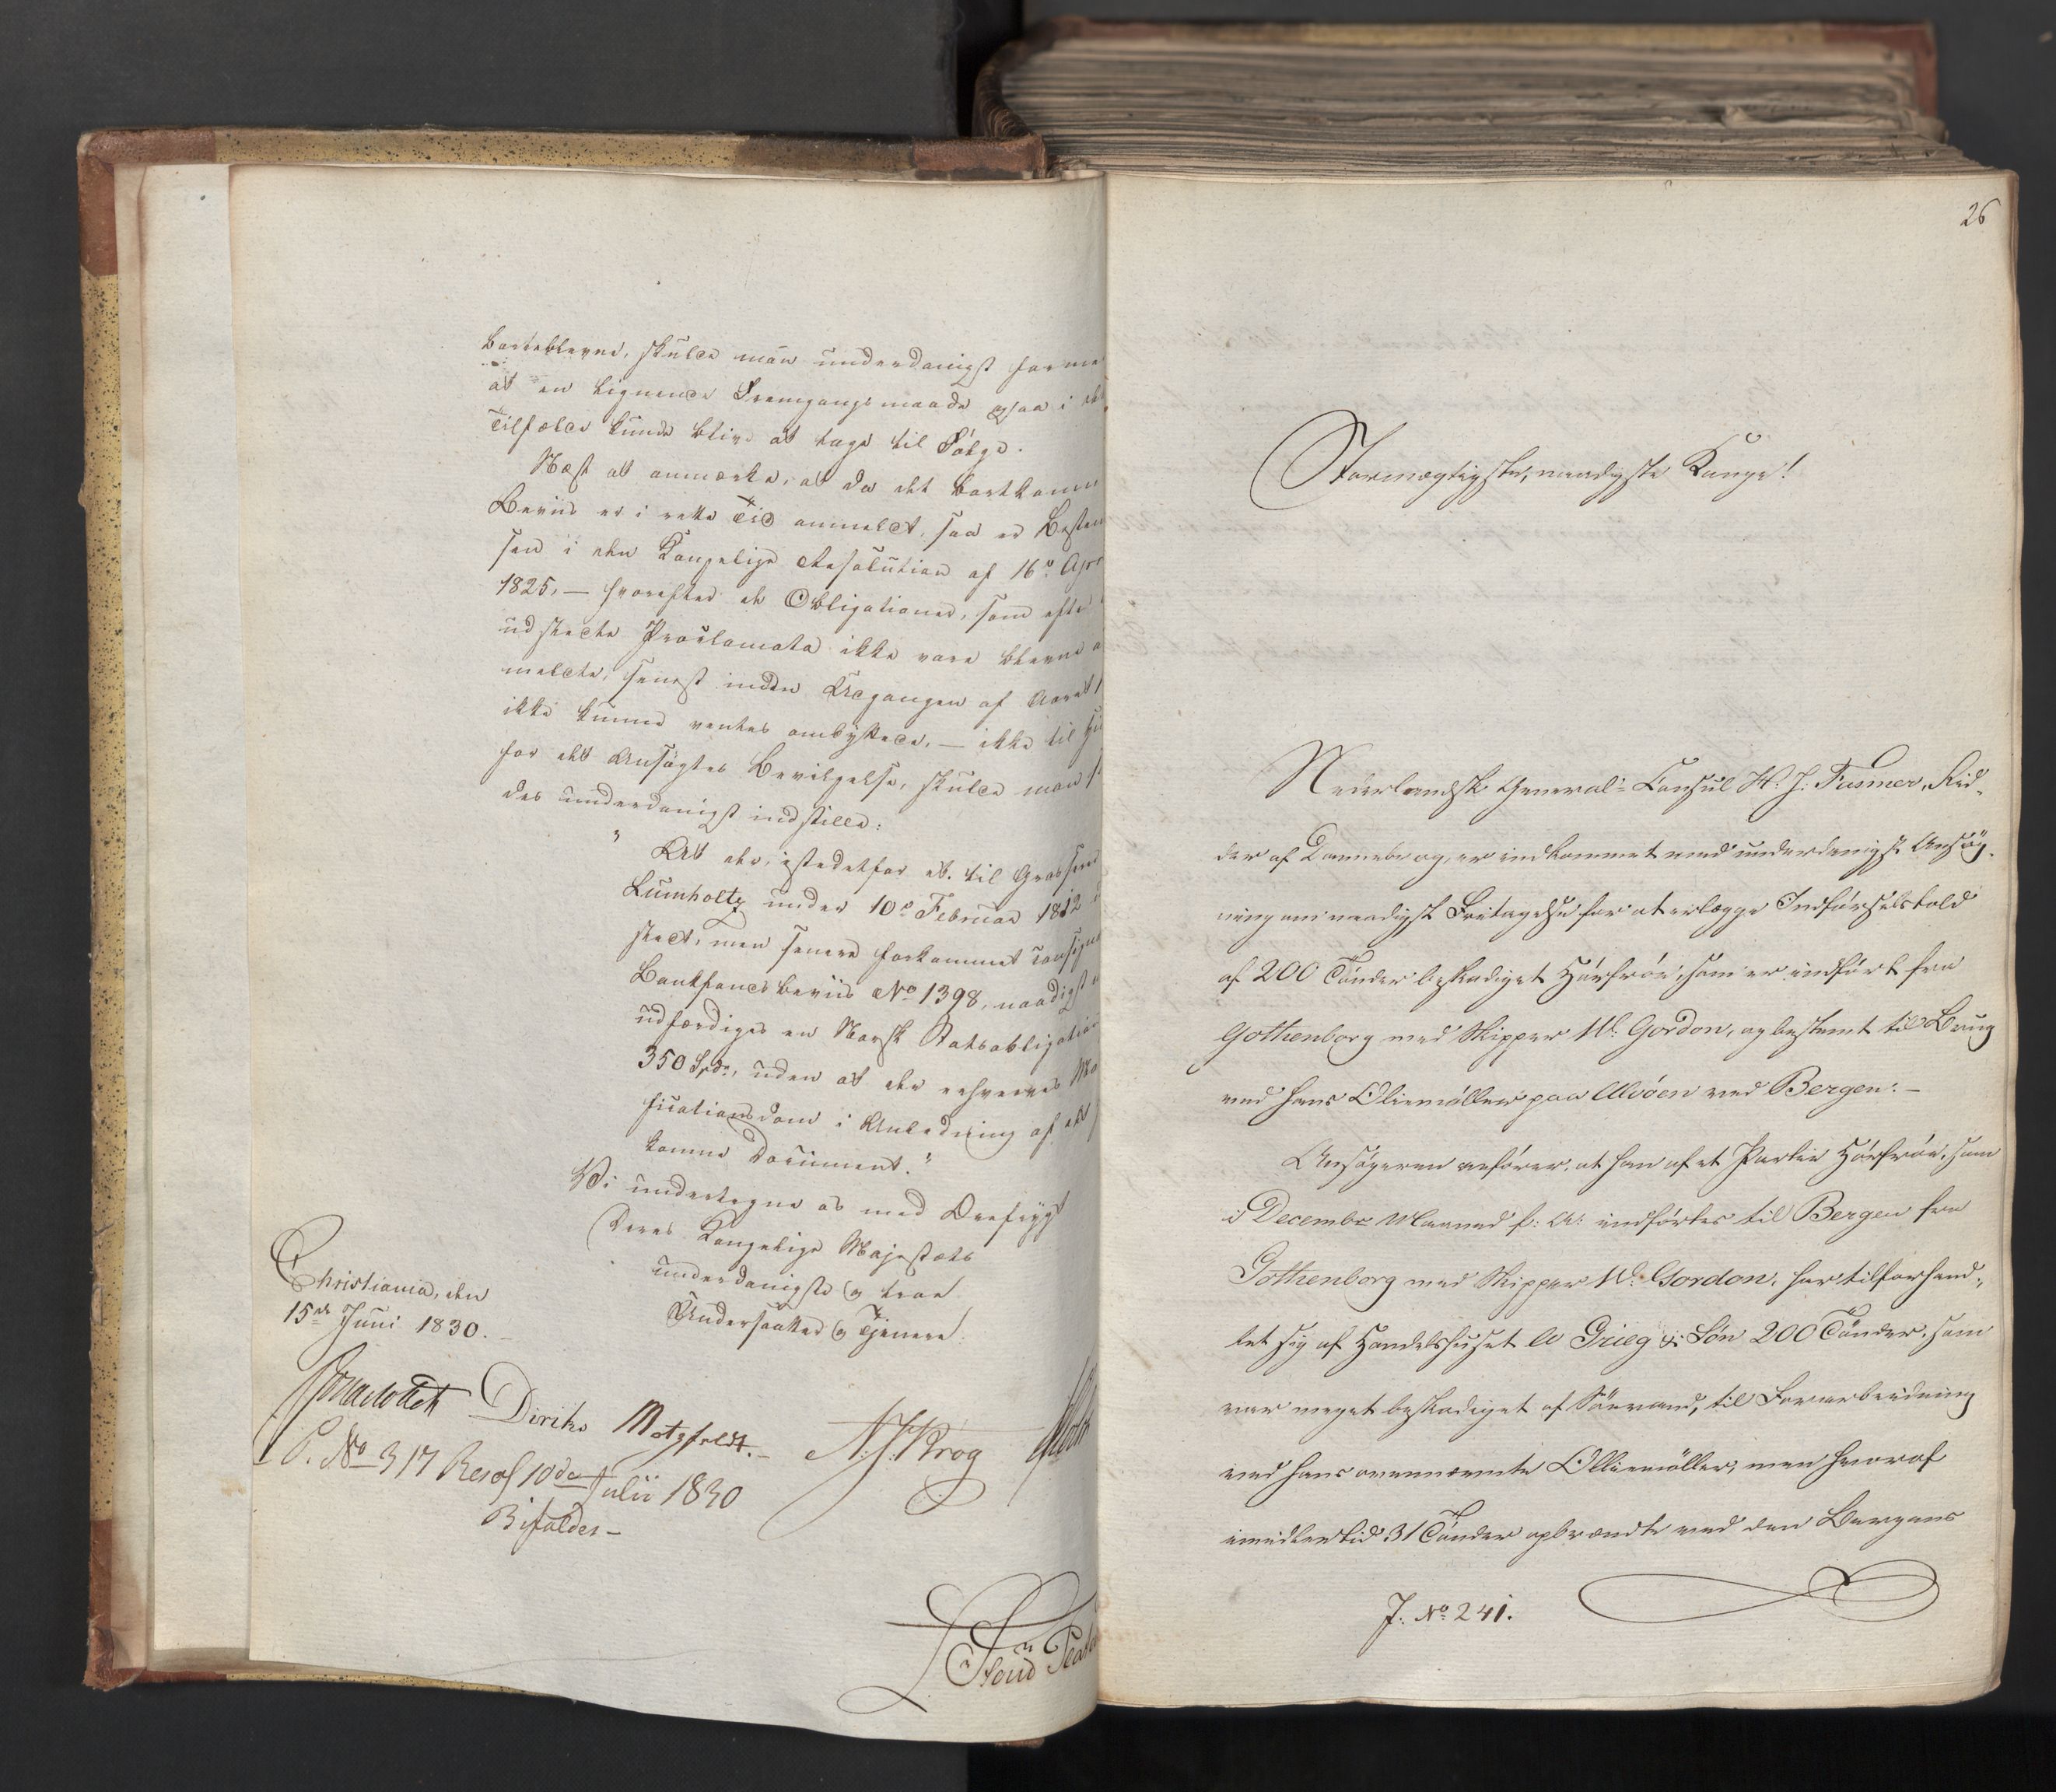 borteblevne, skulde man underdanigst forme
at en lignende Fremgangsmaade ogsaa i det
Tilfælde kunde blive at tage til Følge.
Næst at anmærke, at da det bortkomne
Beviis er i rette Tid anmeldt, saa er Bestem
sen i den Kongelige Resolution af 16de Apr
1825, — hvorefter de Obligationer, som efter
udstedte Proclamata ikke vare blevne a
meldte, senest inden Udgangen af Aaret 1
ikke kunne ventes ombyttede, — ikke til Hi
for det Ansøgtes Bevilgelse, skulde man s
des underdanigst indstille:
" At der, istedetfor et, til Grosserer
Lumholtz under 10de Februar 1812 u
stedt, men senere forkommet consigne
Bankfonds beviis No 1398, naadigst
udfærdiges en Norsk Statsobligation
350 Spdr, uden at der erhverves Mo
ficationsdom i Anledning af det
komne Document."
Vi undertegne os med Ærefrygt
Deres Kongelige Majestæts
underdanigste og troe
Undersaatter og Tjenere.
Christiania, den
15de Juni 1830.
Diriks Motzfeldt. N. J. Krog
P. No 317 Resol 10de Julii 1830
Bifaldes—
26
Stormægtigste, naadigste Konge!
Nederlandsk General-Consul H. J. Fasmer, Rid-
der af Dannebrog, er indkommet med underdanigst Ansøg-
ning om naadigst Fritagelse for at erlægge Indførselstold
af 200 Tønder beskadiget Hørfrøe, som er indført fra
Gothenborg med Skipper W. Gordon, og bestemt til Brug
ved hans Oliemøller paa Alvøen ved Bergen.—
Ansøgeren anfører, at han af et Partie Hørfrøe, som
i Decembr Maaned f: A: indførtes til Bergen fra
Gothenborg med Skipper W. Gordon, har tilforhand-
let sig af Handelshuset A Grieg & Søn 200 Tønder, som
var meget beskadiget af Søevand, til Forarbeidning
ved hans ovennævnte Olliemøller, men hvoraf
imidlertid 31 Tønder opbrændte ved den Bergens
J. No 241.